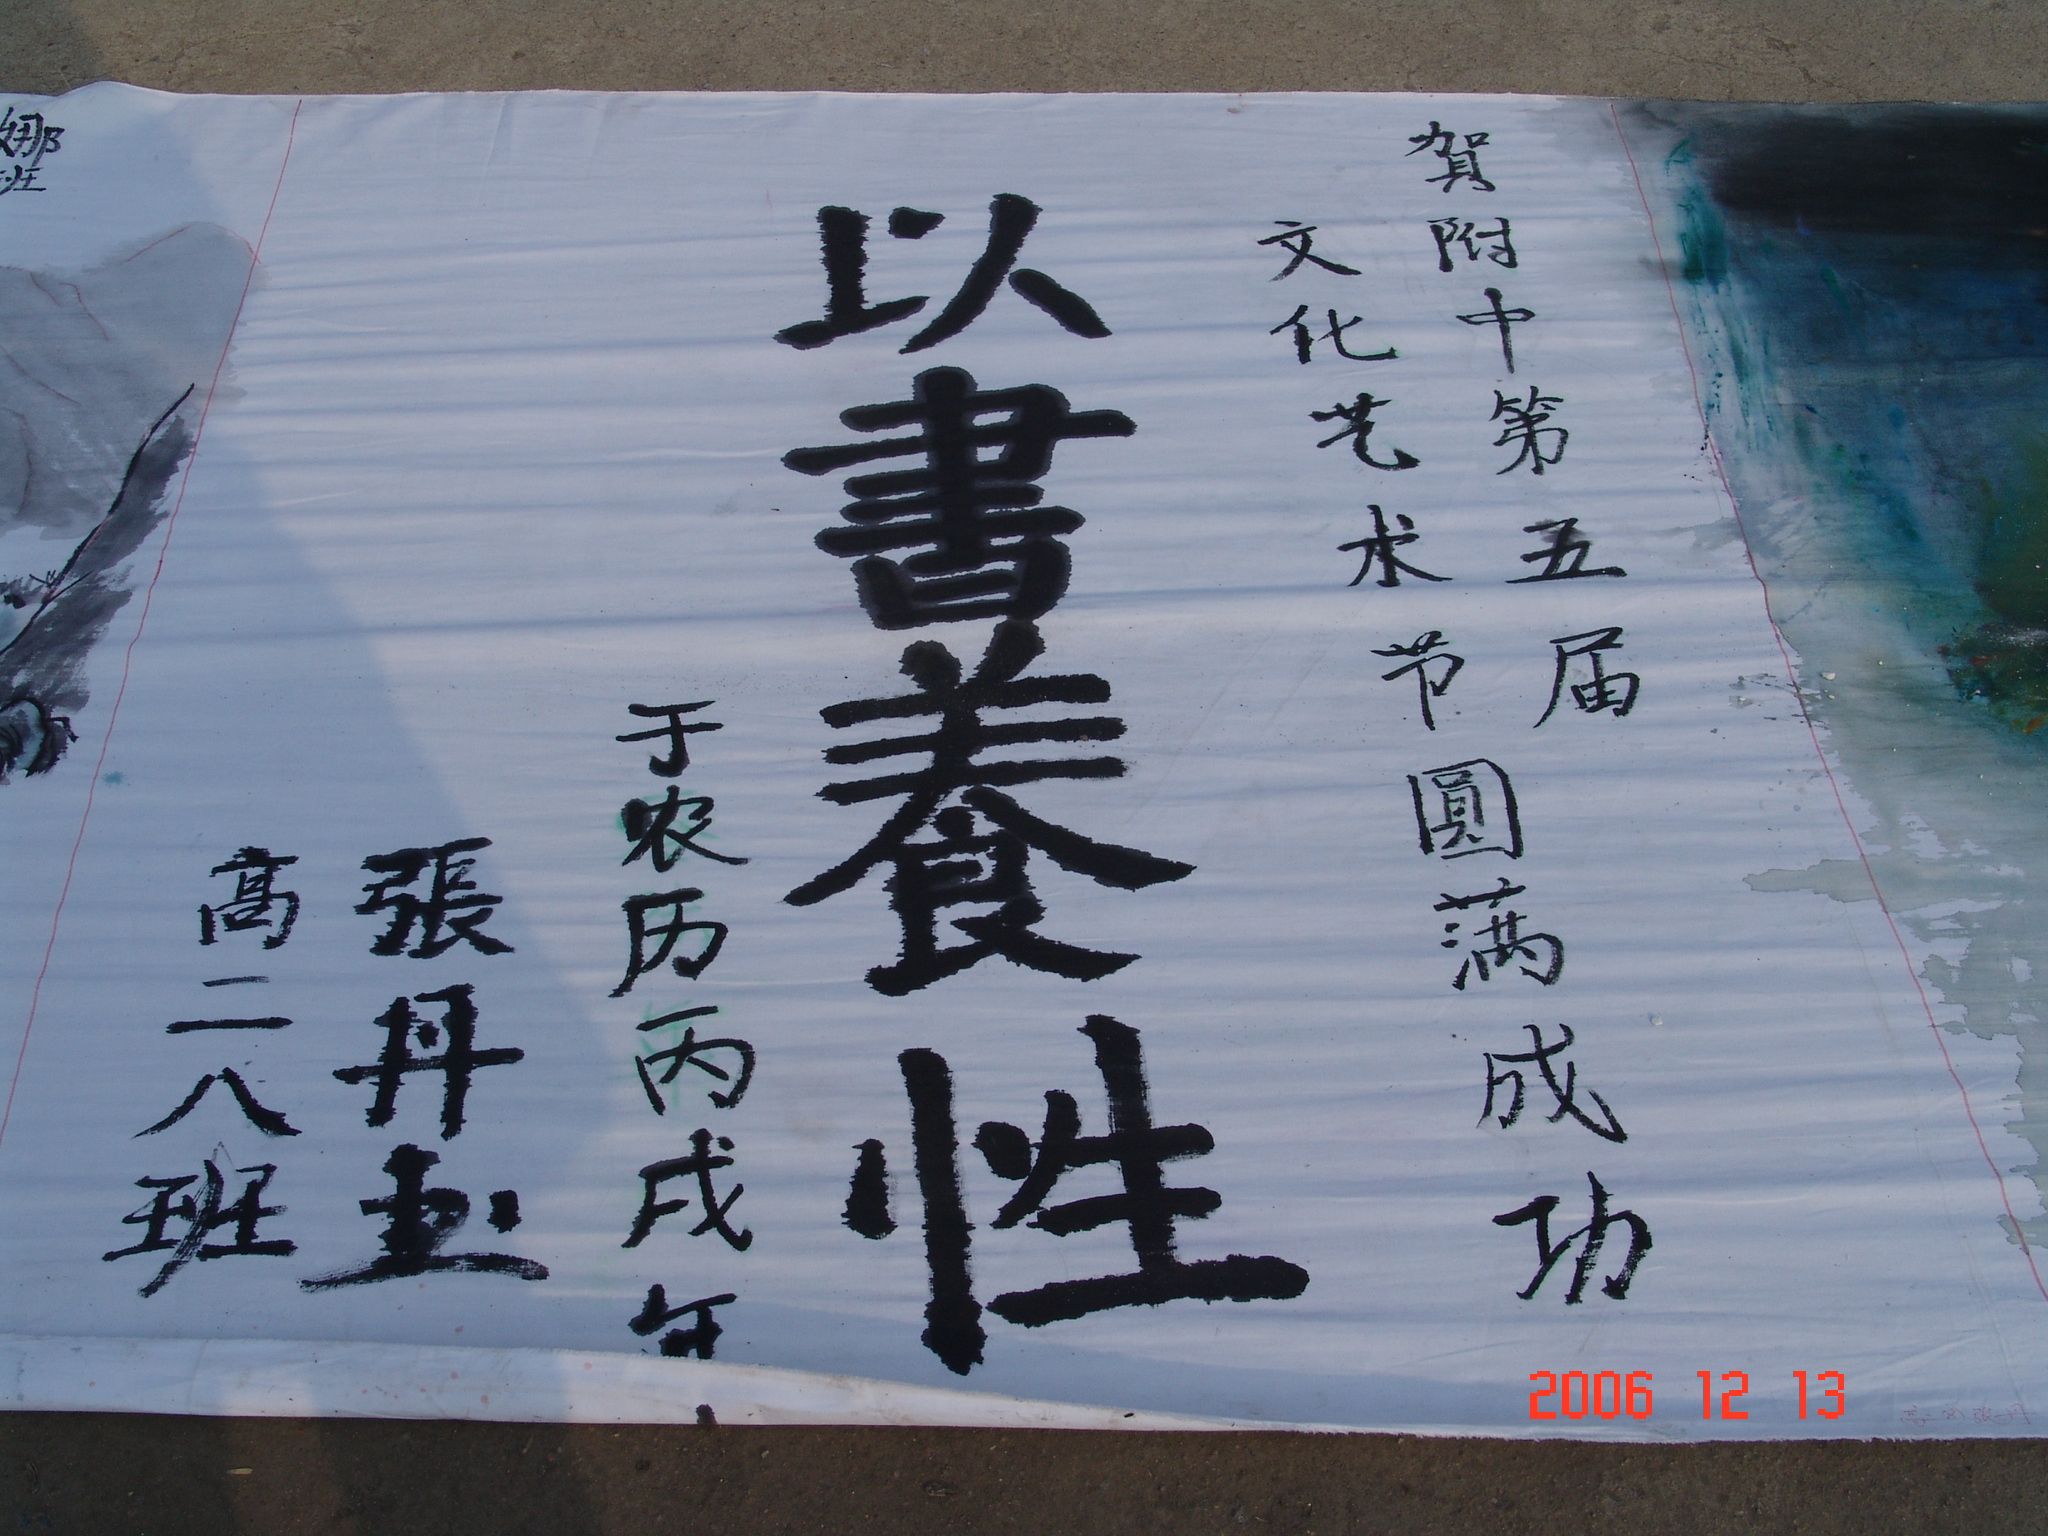 賀附中第五届
文化艺术节圓满成功
以書養性
于农历丙戌年
張丹玉
高二八班
娜
班
2006 12 13